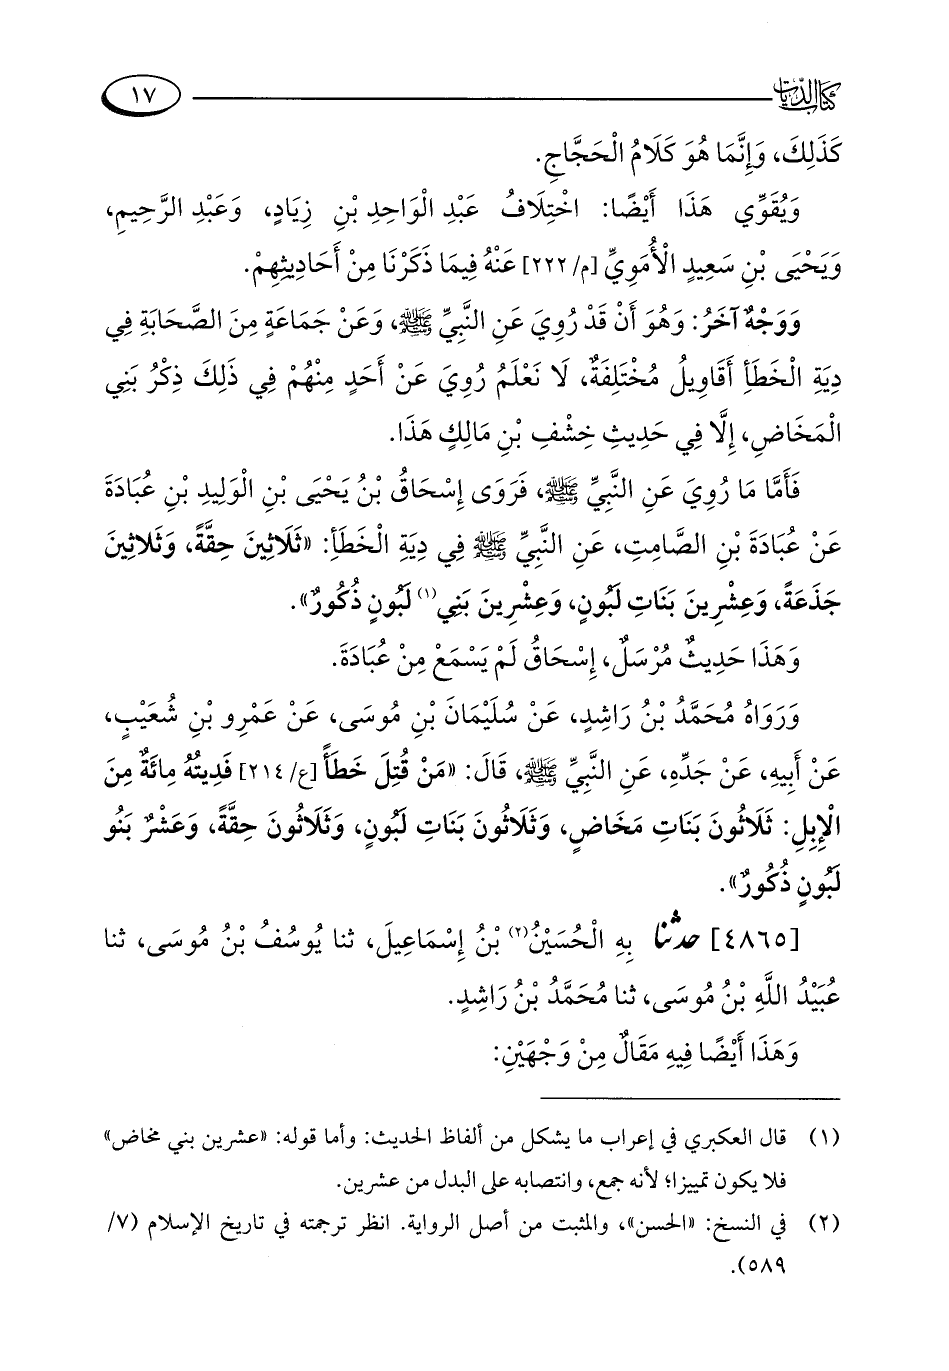 كتاب الديات ١٧
كَذَلِكَ، وَإِنَّمَا هُوَ كَلَامُ الْحَجَّاجِ.
وَيُقَوِّي هَذَا أَيْضًا: اخْتِلَافُ عَبْدِ الْوَاحِدِ بْنِ زِيَادٍ، وَعَبْدِ الرَّحِيمِ،
وَيَحْيَى بْنِ سَعِيدٍ الْأُمَوِيِّ [م/٢٢٢] عَنْهُ فِيمَا ذَكَرْنَا مِنْ أَحَادِيثِهِمْ.
وَوَجْهٌ آخَرُ: وَهُوَ أَنْ قَدْ رُوِيَ عَنِ النَّبِيِّ ﷺ، وَعَنْ جَمَاعَةٍ مِنَ الصَّحَابَةِ فِي
دِيَةِ الْخَطَأِ أَقَاوِيلُ مُخْتَلِفَةٌ، لَا نَعْلَمُ رُوِيَ عَنْ أَحَدٍ مِنْهُمْ فِي ذَلِكَ ذِكْرُ بَنِي
الْمَخَاضِ، إِلَّا فِي حَدِيثِ خِشْفِ بْنِ مَالِكٍ هَذَا.
فَأَمَّا مَا رُوِيَ عَنِ النَّبِيِّ ﷺ، فَرَوَى إِسْحَاقُ بْنُ يَحْيَى بْنِ الْوَلِيدِ بْنِ عُبَادَةَ
عَنْ عُبَادَةَ بْنِ الصَّامِتِ، عَنِ النَّبِيِّ ﷺ فِي دِيَةِ الْخَطَأِ: «ثَلَاثِينَ حِقَّةً، وَثَلَاثِينَ
جَذَعَةً، وَعِشْرِينَ بَنَاتِ لَبُونٍ، وَعِشْرِينَ بَنِي(١) لَبُونٍ ذُكُورٌ».
وَهَذَا حَدِيثٌ مُرْسَلٌ، إِسْحَاقُ لَمْ يَسْمَعْ مِنْ عُبَادَةَ.
وَرَوَاهُ مُحَمَّدُ بْنُ رَاشِدٍ، عَنْ سُلَيْمَانَ بْنِ مُوسَى، عَنْ عَمْرِو بْنِ شُعَيْبٍ،
عَنْ أَبِيهِ، عَنْ جَدِّهِ، عَنِ النَّبِيِّ ﷺ، قَالَ: «مَنْ قُتِلَ خَطَأً [ع/٢١٤] فَدِيتُهُ مِائَةٌ مِنَ
الْإِبِلِ: ثَلَاثُونَ بَنَاتِ مَخَاضٍ، وَثَلَاثُونَ بَنَاتِ لَبُونٍ، وَثَلَاثُونَ حِقَّةً، وَعَشْرٌ بَنُو
لَبُونٍ ذُكُورٌ».
[٤٨٦٥] حدثنا بِهِ الْحُسَيْنُ(٢) بْنُ إِسْمَاعِيلَ، ثنا يُوسُفُ بْنُ مُوسَى، ثنا
عُبَيْدُ اللَّهِ بْنُ مُوسَى، ثنا مُحَمَّدُ بْنُ رَاشِدٍ.
وَهَذَا أَيْضًا فِيهِ مَقَالٌ مِنْ وَجْهَيْنِ:
(١) قال العكبري في إعراب ما يشكل من ألفاظ الحديث: وأما قوله: «عشرين بني مخاض»
فلا يكون تمييزا؛ لأنه جمع، وانتصابه على البدل من عشرين.
(٢) في النسخ: «الحسن»، والمثبت من أصل الرواية. انظر ترجمته في تاريخ الإسلام (٧/
٥٨٩).